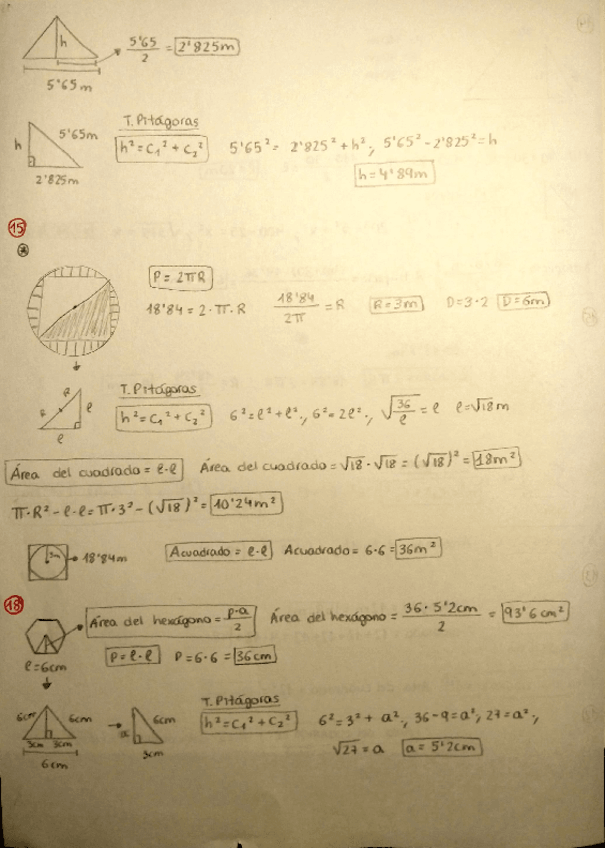 h
5'65/2 = 2'825m
5'65m
T. Pitágoras
h 5'65m
h² = C₁² + C₂² 5'65² = 2'825² + h²; 5'65² - 2'825² = h
2'825m
h = 4'89m
15
P = 2πR
18'84 = 2·π·R 18'84/2π = R R = 3m D = 3·2 D = 6m
T. Pitágoras
R R ℓ
h² = C₁² + C₂² 6² = ℓ² + ℓ²; 6² = 2ℓ²; √36/ℓ = ℓ ℓ = √18 m
ℓ
Área del cuadrado = ℓ·ℓ Área del cuadrado = √18 · √18 = (√18)² = 18m²
π·R² - ℓ·ℓ = π·3² - (√18)² = 10'24m²
3m 18'84m Acuadrado = ℓ·ℓ Acuadrado = 6·6 = 36m²
18
Área del hexágono = p·a/2 Área del hexágono = 36·5'2cm/2 = 93'6cm²
P = ℓ·ℓ P = 6·6 = 36cm
ℓ = 6cm
T. Pitágoras
6cm 6cm a 6cm
h² = C₁² + C₂² 6² = 3² + a²; 36 - 9 = a²; 27 = a²;
3cm 3cm 3cm
√27 = a a = 5'2cm
6cm